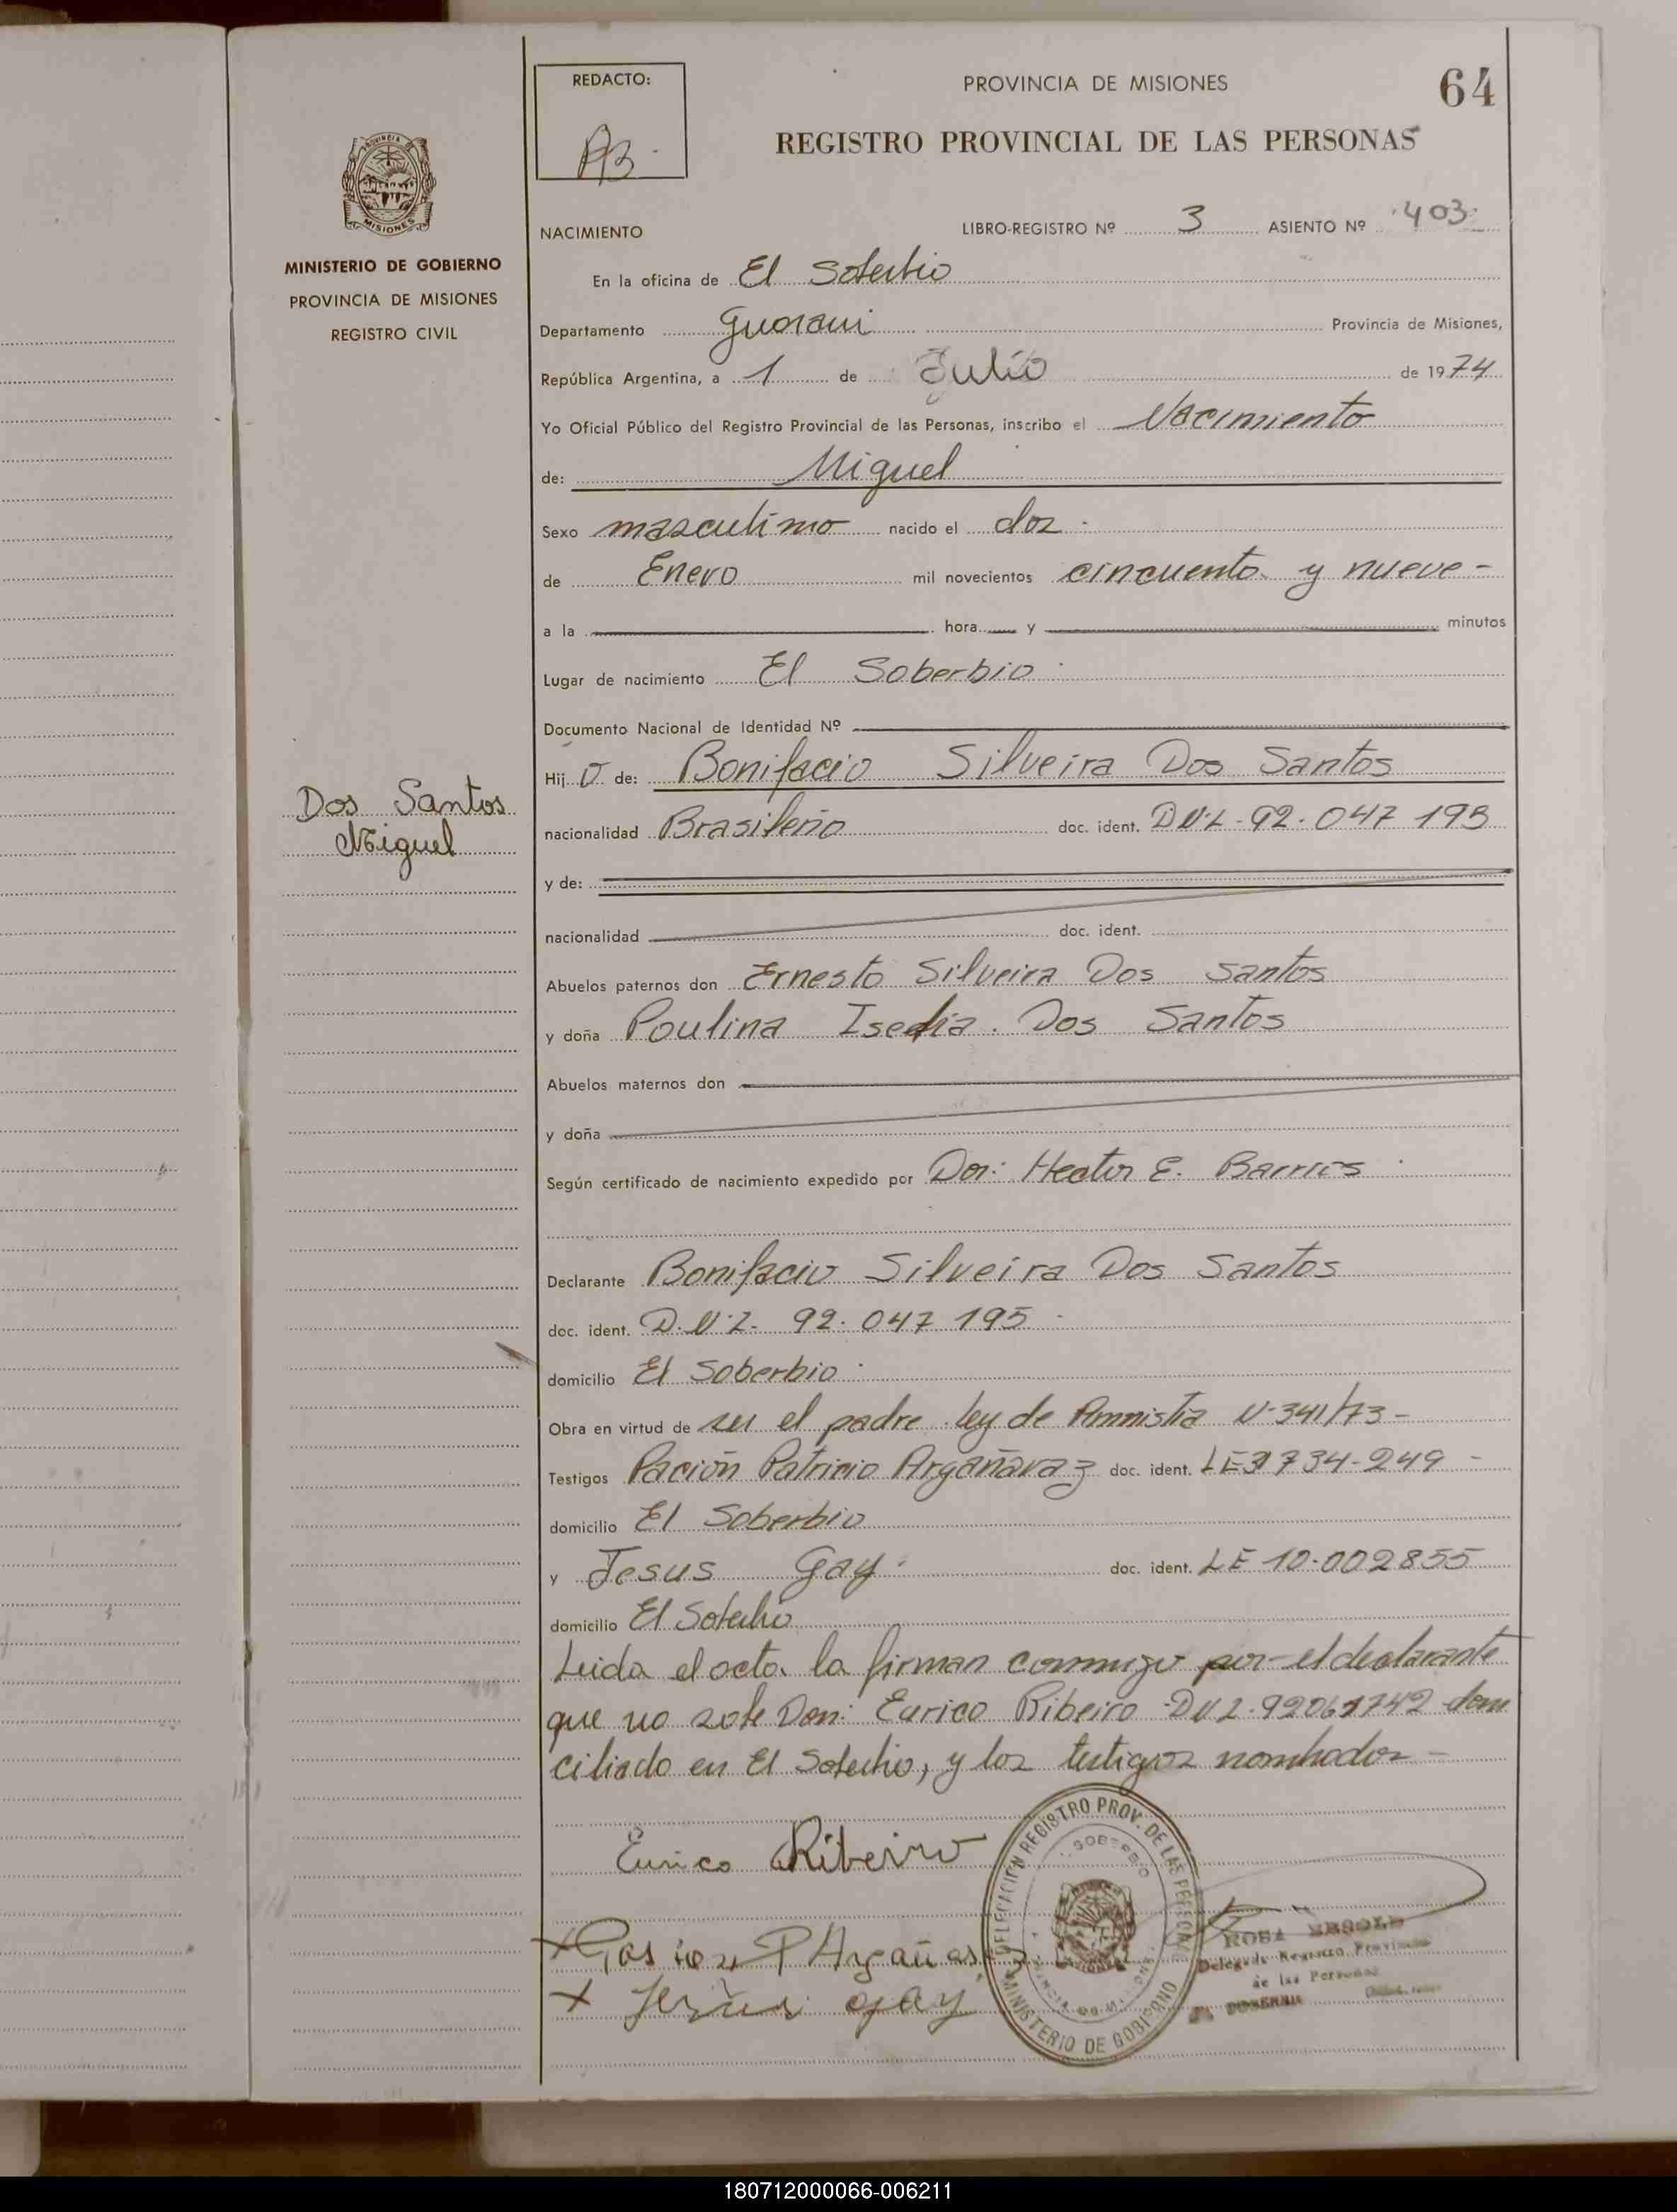 REDACTO:
PB
PROVINCIA DE MISIONES
64
REGISTRO PROVINCIAL DE LAS PERSONAS
MINISTERIO DE GOBIERNO
PROVINCIA DE MISIONES
REGISTRO CIVIL
NACIMIENTO LIBRO-REGISTRO Nº 3 ASIENTO Nº 403
En la oficina de El Soberbio
Departamento Guarani Provincia de Misiones,
República Argentina, a 1 de Julio de 1974
Yo Oficial Público del Registro Provincial de las Personas, inscribo el Nacimiento
de: Miguel
Sexo masculino nacido el dos
de Enero mil novecientos cincuenta y nueve -
a la hora y minutos
Lugar de nacimiento El Soberbio
Documento Nacional de Identidad Nº
Hij o de: Bonifacio Silveira Dos Santos
Dos Santos
Miguel
nacionalidad Brasileño doc. ident. D.N.I. 92.047 195
y de:
nacionalidad doc. ident.
Abuelos paternos don Ernesto Silveira Dos Santos
y doña Poulina Isedia Dos Santos
Abuelos maternos don
y doña
Según certificado de nacimiento expedido por Dor: Hector E. Barrios
Declarante Bonifacio Silveira Dos Santos
doc. ident. D.N.I. 92.047 195
domicilio El Soberbio
Obra en virtud de ser el padre ley de Amnistia N-341/73-
Testigos Pación Patricio Argañaraz doc. ident. LE 3734-249 -
domicilio El Soberbio
y Jesus Gay doc. ident. LE 10.002855
domicilio El Soberbio
Leida el acta la firman conmigo por el declarante
que no sabe Don: Eurico Ribeiro DNI.92061742 domi
ciliado en El Soberbio, y los testigos nombrados -
Eurico Ribeiro
DELEGACION REGISTRO PROV. DE LAS PERSONAS
MINISTERIO DE GOBIERNO
+ P Argañas
+ Jesus gay
ROSA
Delegada Registro Provincial
de las Personas
180712000066-006211